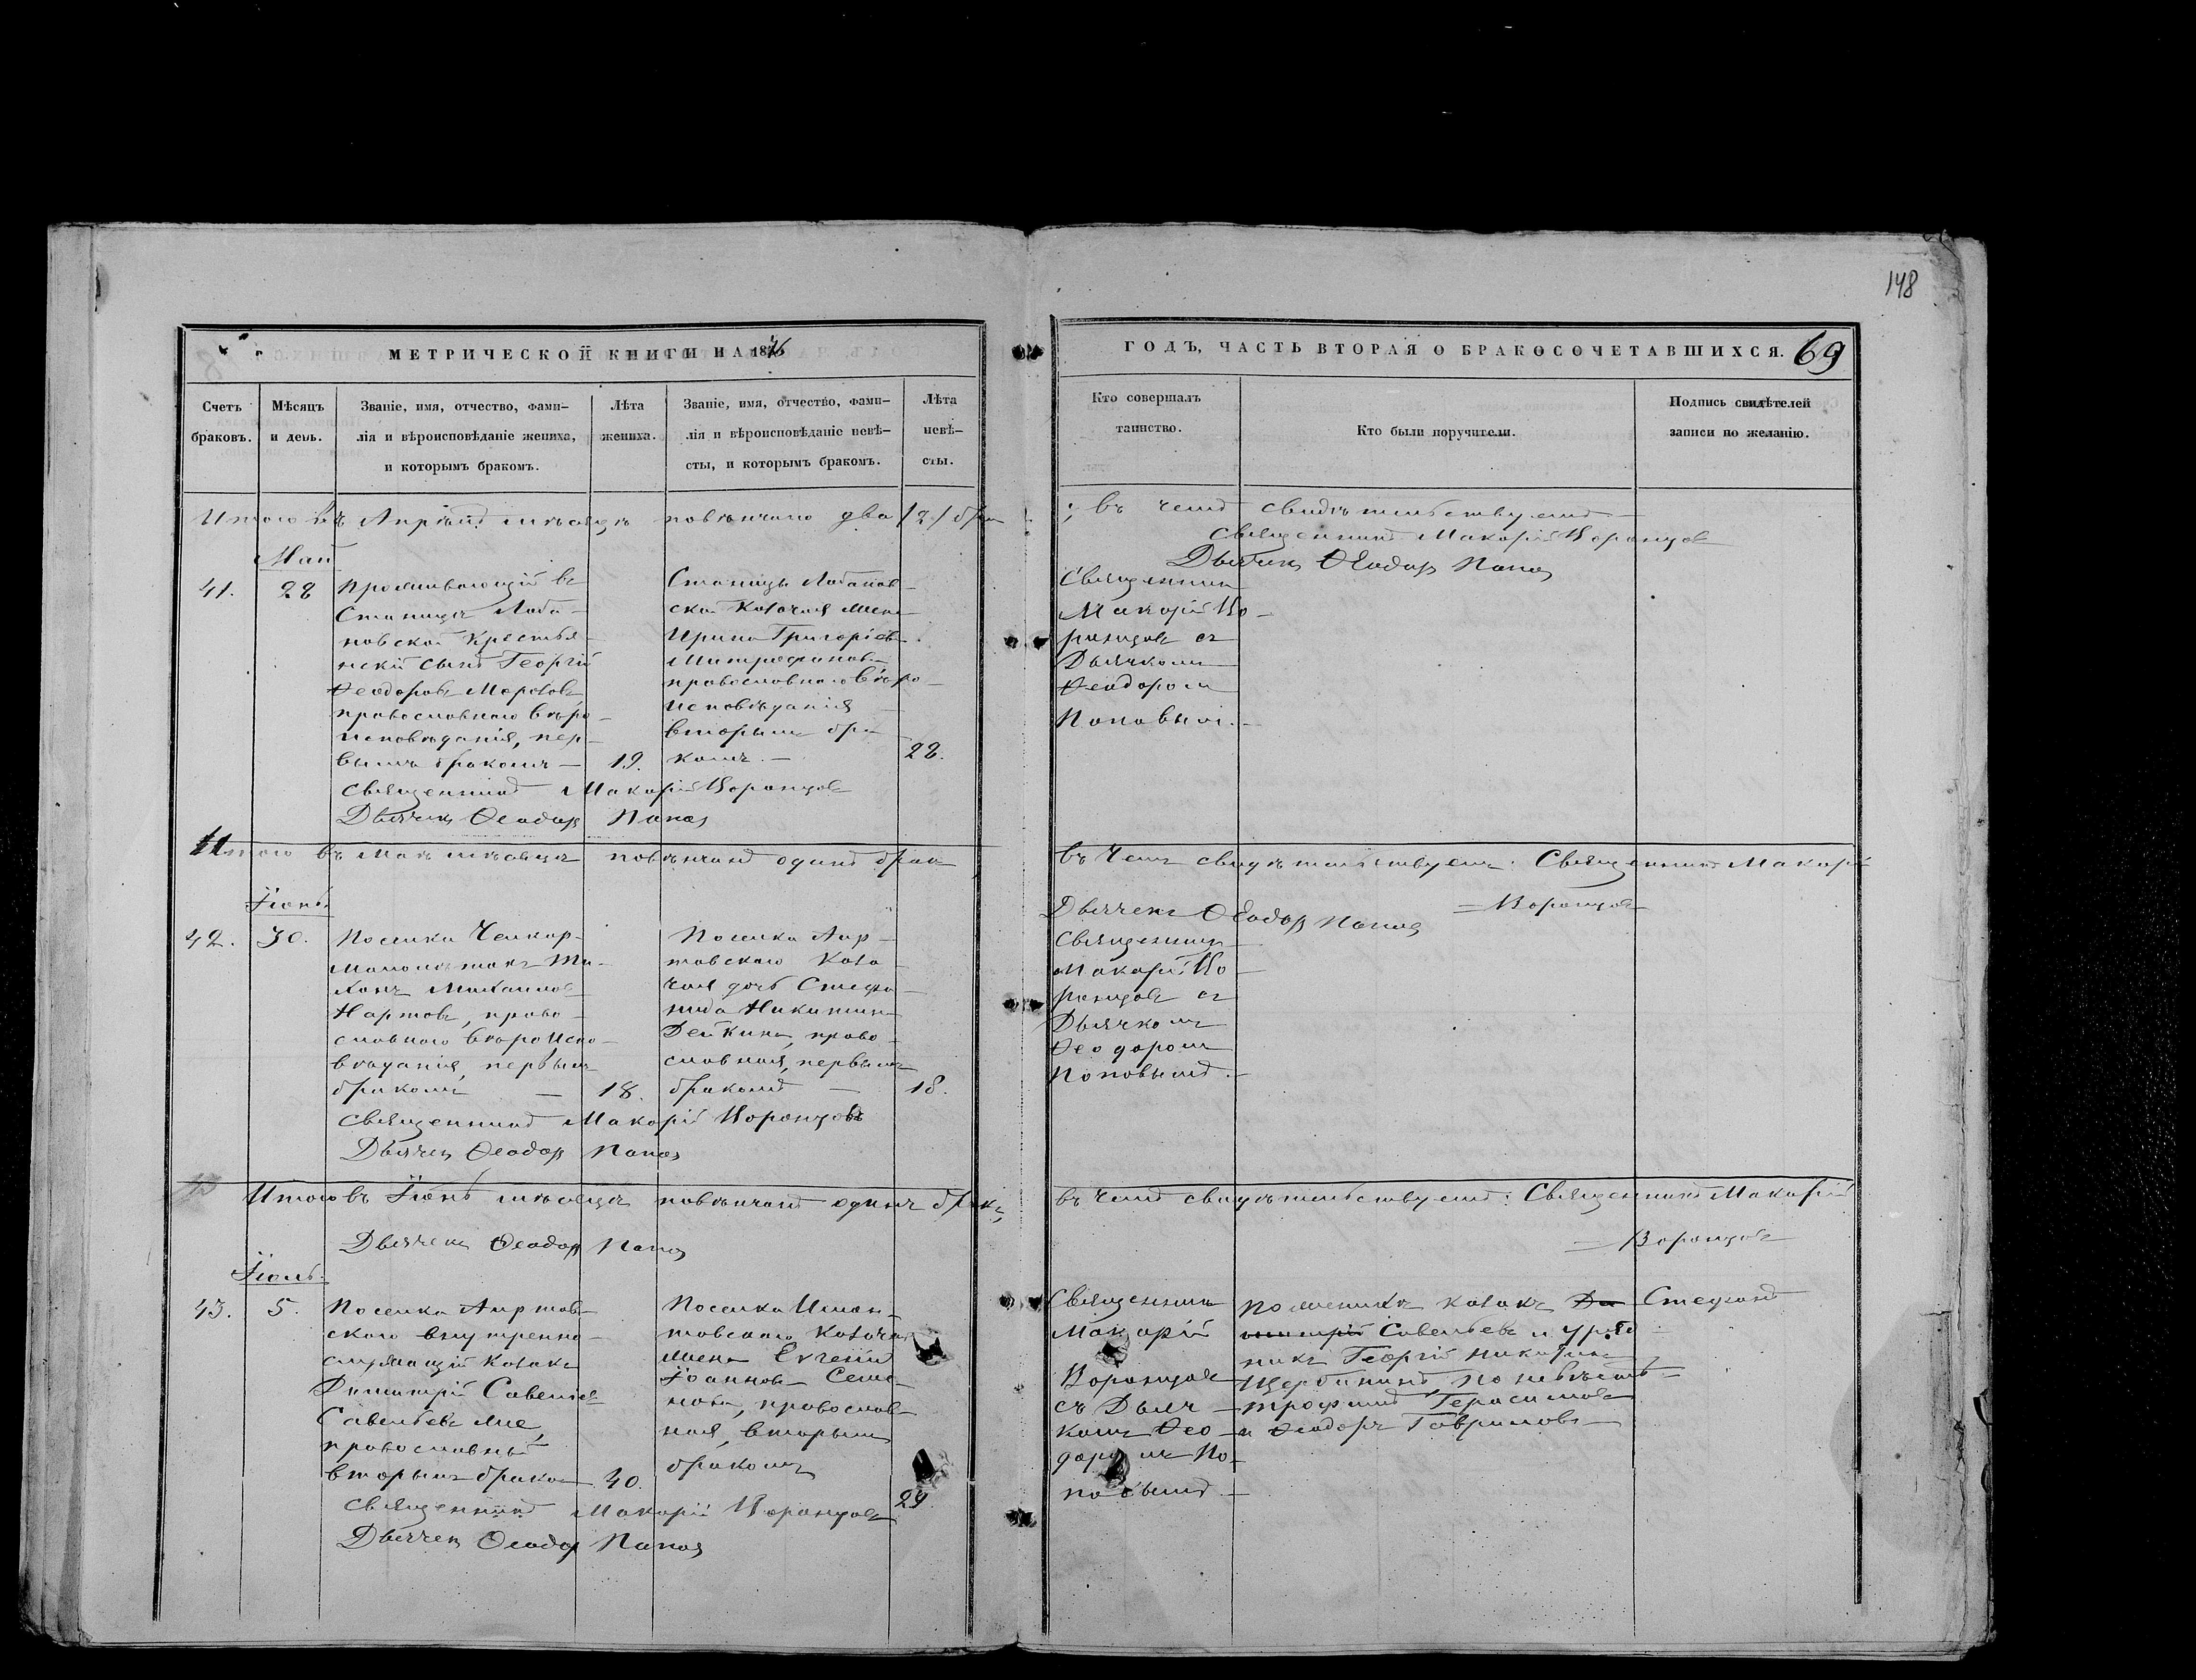 148
МЕТРИЧЕСКОЙ КНИГИ НА 1876
ГОДЪ, ЧАСТЬ ВТОРАЯ О БРАКОСОЧЕТАВШИХСЯ. 69
Счетъ
браковъ.
Мѣсяцъ
и день.
Званіе, имя, отчество, фами-
лія и вѣроисповѣданіе жениха,
и которымъ бракомъ.
Лѣта
жениха.
Званіе, имя, отчество, фами-
лія и вѣроисповѣданіе невѣ-
сты, и которымъ бракомъ.
Лѣта
невѣ-
сты.
Кто совершалъ
таинство.
Кто были поручители.
Подпись свидѣтелей
записи по желанію.
Итого въ мѣсяцѣ повѣнчано два /2/ бра
; въ чемъ свидѣтельствуемъ
Священникъ Макарій Воронцовъ
Дьячекъ Ѳеодоръ Поповъ
Май
41.
28
Проживающій въ
Станицѣ Лоба-
новской Крестья-
нскій сынъ Георгій
Ѳеодоровъ Морозовъ
православнаго вѣро-
исповѣданія, пер-
вымъ бракомъ —
19.
Станицы Лобанов-
ской Козачья жена
Ирина Григоріева
Митрофанова
православнаго вѣро-
исповѣданія
вторымъ бра-
комъ. —
28.
Священникъ
Макарій Во-
ронцовъ съ
Дьячкомъ
Ѳеодоромъ
Поповымъ. —
Священникъ Макарій Воронцовъ
Дьячекъ Ѳеодоръ Поповъ
Итого въ Маѣ мѣсяцѣ повѣнчанъ одинъ бракъ
въ чемъ свидѣтельствуемъ: Священникъ Макарій
Воронцовъ
Дьячекъ Ѳеодоръ Поповъ
Іюнь.
42.
30.
Поселка Челкар-
Ти-
хонъ Михаиловъ
Нартовъ, право-
славнаго вѣроиспо-
вѣданія, первымъ
бракомъ —
18.
Поселка Аир-
товскаго Коза-
чья дочь Степа-
нида Никитина
Дейкина, право-
славная, первымъ
бракомъ —
18.
Священникъ
Макарій Во-
ронцовъ съ
Дьячкомъ
Ѳеодоромъ
Поповымъ. —
Священникъ Макарій Воронцовъ
Дьячекъ Ѳеодоръ Поповъ
Итого въ Іюнѣ мѣсяцѣ повѣнчанъ одинъ бракъ,
въ чемъ свидѣтельствуемъ: Священникъ Макарій
Воронцовъ
Дьячекъ Ѳеодоръ Поповъ
Іюль.
43.
5.
Поселка Аиртов-
скаго внутренно-
служащій Козакъ
Димитрій Савельев
Савельевъ же,
православный
вторымъ бракомъ
40.
Поселка Иман-
товскаго Козачья
жена Евгенія
Іоаннова Семе-
нова, православ-
ная, вторымъ
бракомъ
29.
Священникъ
Макарій
Воронцовъ
съ Дьяч-
комъ Ѳео-
доромъ По-
повымъ. —
По женихѣ козакъ Стефанъ
Савельевъ и уряд-
никъ Георгій
Щербининъ по невѣстѣ
Трофимъ Герасимовъ
и Ѳеодоръ Гавриловъ
Священникъ Макарій Воронцовъ
Дьячекъ Ѳеодоръ Поповъ